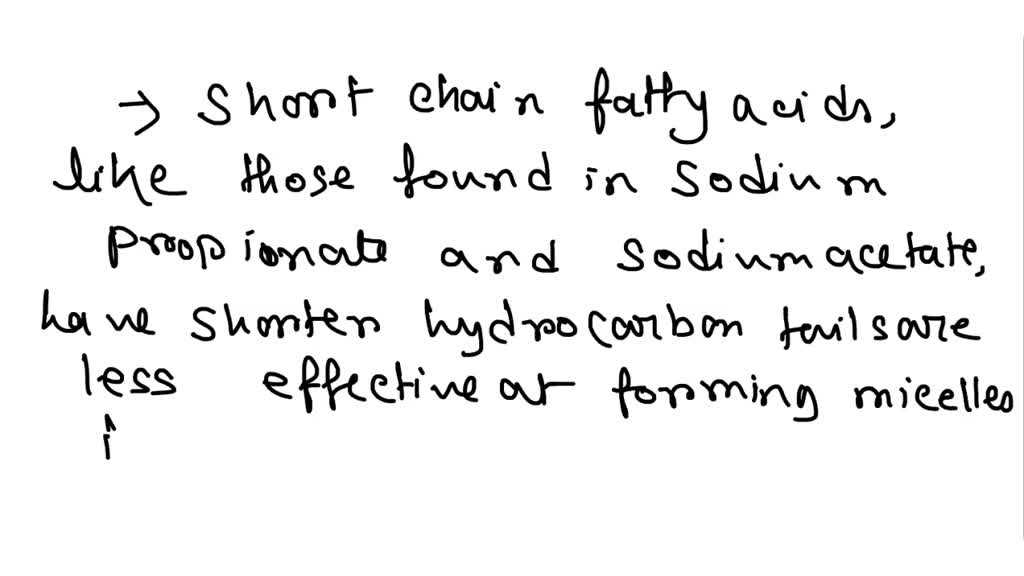 → Short chain fatty acids,
like those found in sodium
propionate and sodium acetate,
have shorter hydrocarbon tails are
less effective at forming micelles
i